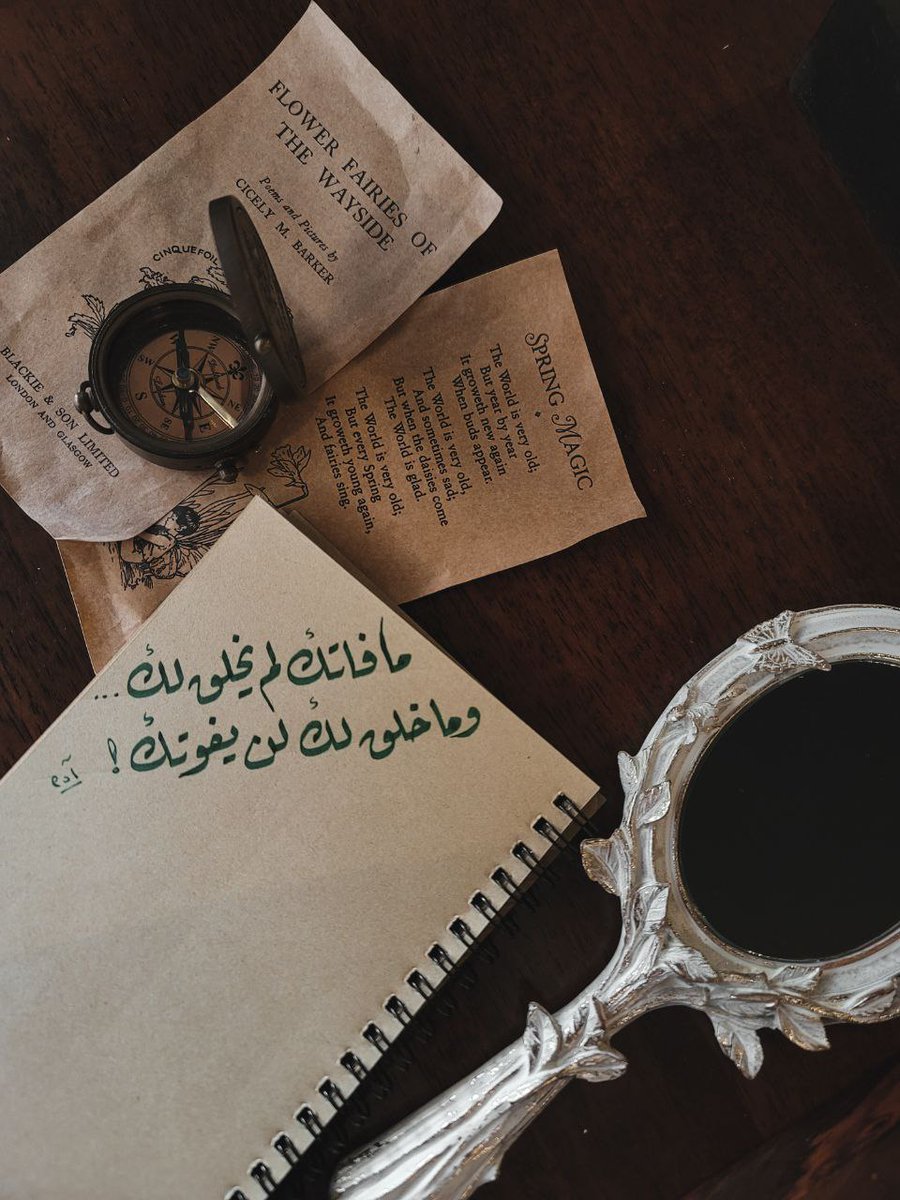 FLOWER FAIRIES OF
THE WAYSIDE
Poems and Pictures by
CICELY M. BARKER
CINQUEFOIL
BLACKIE & SON LIMITED
LONDON AND GLASGOW
SPRING MAGIC
The World is very old;
But year by year
It groweth new again
When buds appear.
The World is very old,
And sometimes sad;
But when the daisies come
The World is glad.
The World is very old;
But every Spring
It groweth young again,
And fairies sing.
ما فاتك لم يخلق لك...
وما خلق لك لن يفوتك!
آدم
S
SW
W
N
NE
E
SE